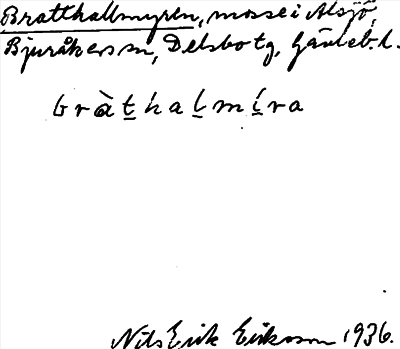 Bratthallmyren, mosse i Alsjö,
Bjuråkers sn, Delsbo tg, Gävleb. l.
bràthalmíra
Nils Erik Eriksson 1936.